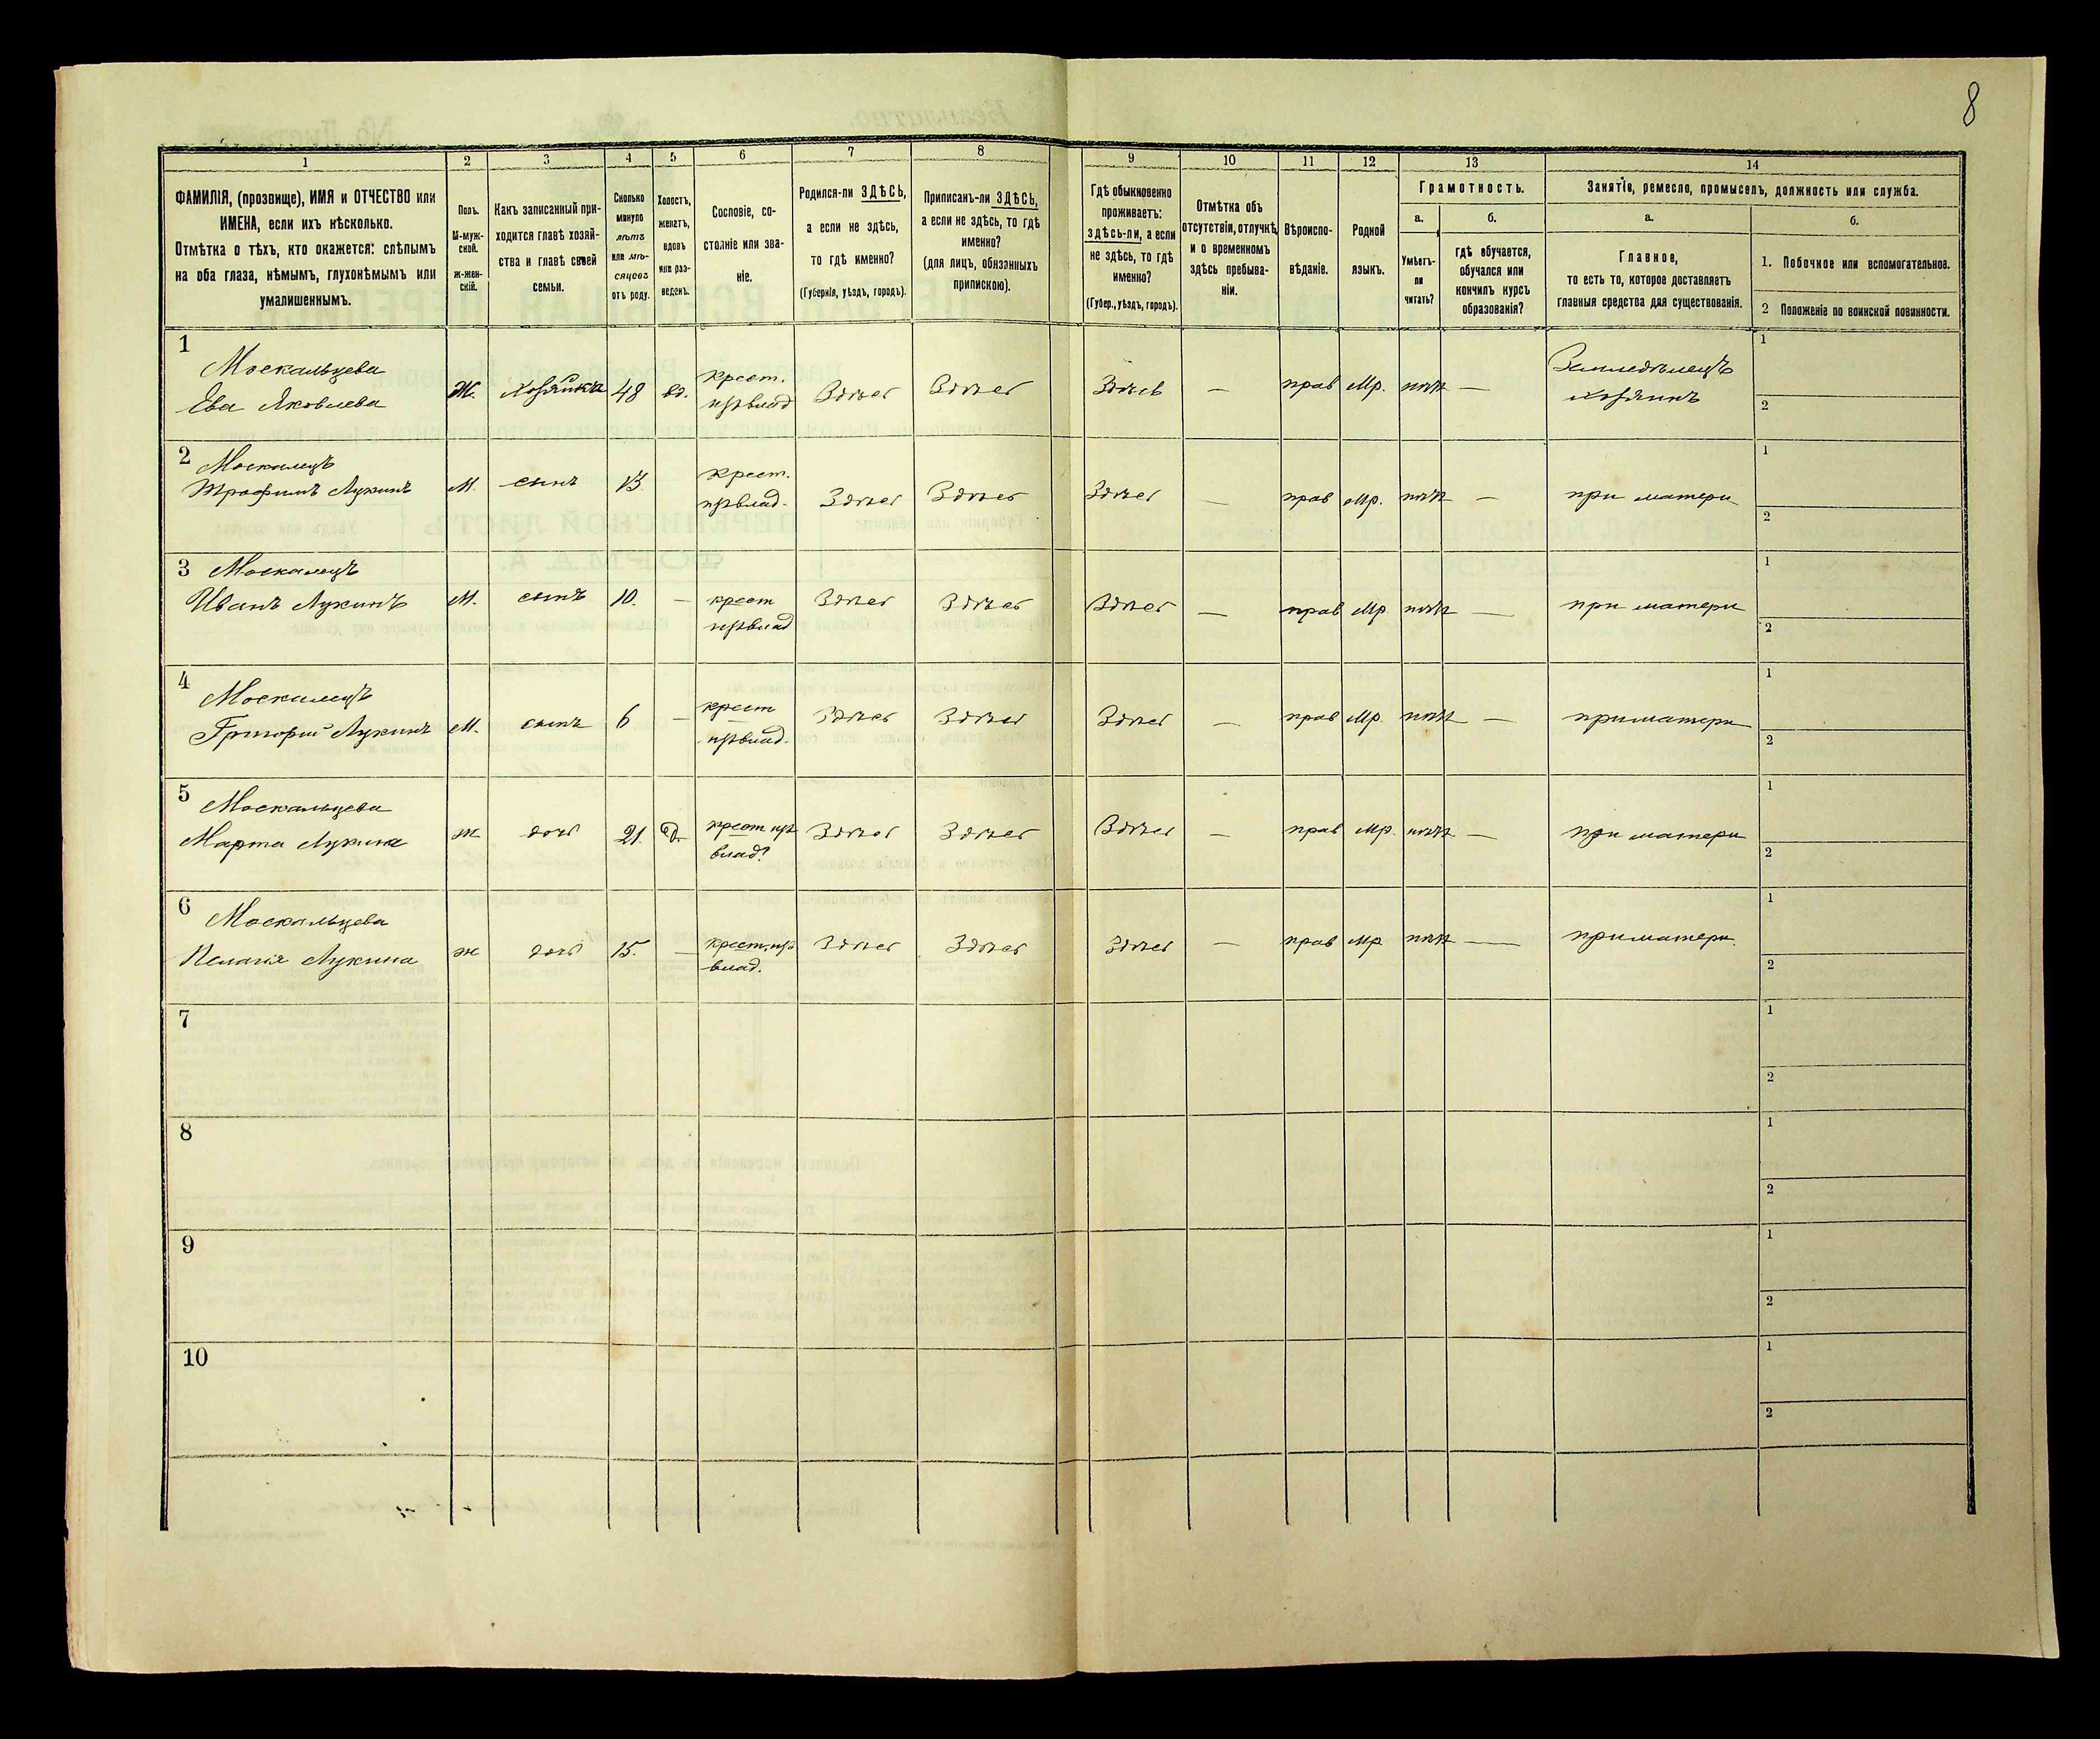 8
1
2
3
4
5
6
7
8
9
10
11
12
13
14
ФАМИЛІЯ, (прозвище), ИМЯ и ОТЧЕСТВО или
ИМЕНА, если ихъ нѣсколько.
Отмѣтка о тѣхъ, кто окажется: слѣпымъ
на оба глаза, нѣмымъ, глухонѣмымъ или
умалишеннымъ.
Полъ.
М-муж-
ской.
ж-жен-
скій.
Какъ записанный при-
ходится главѣ хозяй-
ства и главѣ своей
семьи.
Сколько
минуло
лѣтъ
или мѣ-
сяцевъ
отъ роду.
Холостъ,
женатъ,
вдовъ
или раз-
веденъ.
Сословіе, со-
стояніе или зва-
ніе.
Родился-ли ЗДѢСЬ,
а если не здѣсь,
то гдѣ именно?
(Губернія, уѣздъ, городъ).
Приписанъ-ли ЗДѢСЬ,
а если не здѣсь, то гдѣ
именно?
(для лицъ, обязанныхъ
припискою).
Гдѣ обыкновенно
проживаетъ:
здѣсь-ли, а если
не здѣсь, то гдѣ
именно?
(Губер., уѣздъ, городъ).
Отмѣтка объ
отсутствіи, отлучкѣ
и о временномъ
здѣсь пребыва-
ніи.
Вѣроиспо-
вѣданіе.
Родной
языкъ.
Грамотность.
а.
Умѣетъ-
ли
читать?
б.
гдѣ обучается,
обучался или
кончилъ курсъ
образованія?
Занятіе, ремесло, промыселъ, должность или служба.
а.
Главное,
то есть то, которое доставляетъ
главныя средства для существованія.
б.
1. Побочное или вспомогательное.
2 Положеніе по воинской повинности.
1
Москальцева
Ева Яковлева
Ж.
хозяйка
48
вд.
крест.
изъ влад
Здѣсь
Здѣсь
Здѣсь
—
прав
Мр.
нѣтъ
—
Земледѣлецъ
хозяинъ
1
2
2
Москалецъ
Трофимъ Лукинъ
М.
сынъ
13.
крест.
изъ влад.
Здѣсь
Здѣсь
Здѣсь
—
прав
Мр.
нѣтъ
—
при матери
1
2
3 Москалецъ
Иванъ Лукинъ
М.
сынъ
10.
—
крест
изъ влад
Здѣсь
Здѣсь
Здѣсь
—
прав
Мр
нѣтъ
—
при матери
1
2
4
Москалецъ
Григорій Лукинъ
М.
сынъ
6
—
крест
изъ влад.
Здѣсь
Здѣсь
Здѣсь
—
прав
Мр.
нѣтъ
—
при матери
1
2
5
Москальцева
Марта Лукина
ж
дочь
21.
крест изъ
влад.
Здѣсь
Здѣсь
Здѣсь
—
прав
Мр.
нѣтъ
—
при матери
1
2
6
Москальцева
Пелагія Лукина
ж
дочь
15.
—
крест. изъ
влад.
Здѣсь
Здѣсь
Здѣсь
—
прав
Мр
нѣтъ
—
при матери.
1
2
7
1
2
8
1
2
9
1
2
10
1
2